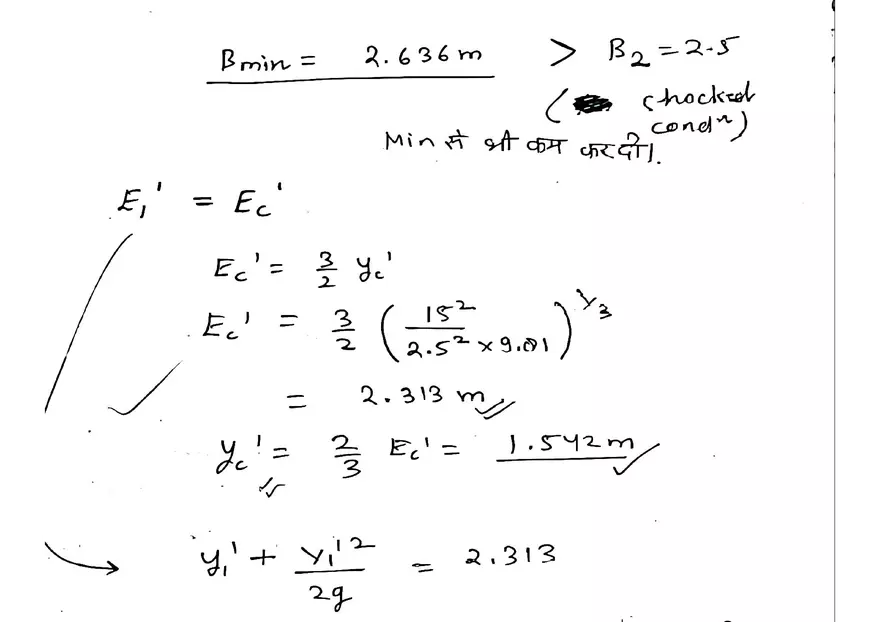 Bmin = 2.636 m > B₂ = 2.5
( chocked condⁿ)
Min से भी कम कर दी।
E₁' = Ec'
Ec' = 3/2 yc'
Ec' = 3/2 (15² / 2.5² × 9.81)^1/3
= 2.313 m
yc' = 2/3 Ec' = 1.542 m
y₁' + V₁'² / 2g = 2.313